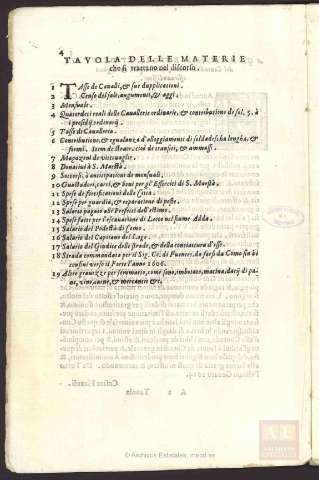 4
TAVOLA DELLE MATERIE
che si trattano nel discorso.
1 Tasse de Caualli, & sue duplicationi.
2 Censo del sale, augumenti, & aggi.
3 Mensuale.
4 Quaterdeci reali delle Cauallerie ordinarie, & contributione di sol. 5. à
i presidij ordinarij.
5 Tasse di Caualleria.
6 Contributione, & egualanza d'alloggiamenti di soldadescha longha, &
simili. Item de straor. cioè de transiti, &
7 Magazeni de vittouaglie.
8 Donatiui à S. Maestà.
9 Soccorsi, & anticipationi de mensuali.
10 Guastadori, carri, & boui per gl'Esserciti di S. Maestà.
11 Spese di fortificationi della Città.
12 Spese per guardia, & reparatione di peste.
13 Salario pagato alli Prefetti dell'estimo.
14 Spese fatte per l'escauatione di Lecco nel fiume Adda.
15 Salario del Podestà di Como.
16 Salario del Capitano del Lago.
17 Salario del Giudice delle strade, & della contiactura d'esse.
18 Strada commandata per il Sig. Co. di Fuentes, da farsi da Como sin
verso il Forte l'anno 1606.
19 Altre grauezze per sommario, come sono, imbotato, macina, datij di pa-
ne, vino, carne, & mercantie &c.
© Archivos Estatales, mecd.es